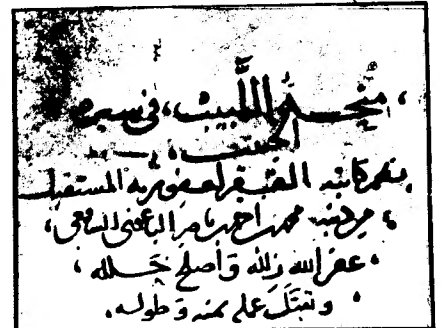 منحة اللبيب، في سيرة
الحبيب،
بقلم كاتبه الفقير لعفو ربه المستقيل
من ذنبه محمد بن احمد بن ناصر الباعوني الشافعي،
، غفر الله زلله وأصلح خلله،
، وتقبل عمله بمنه وطوله.